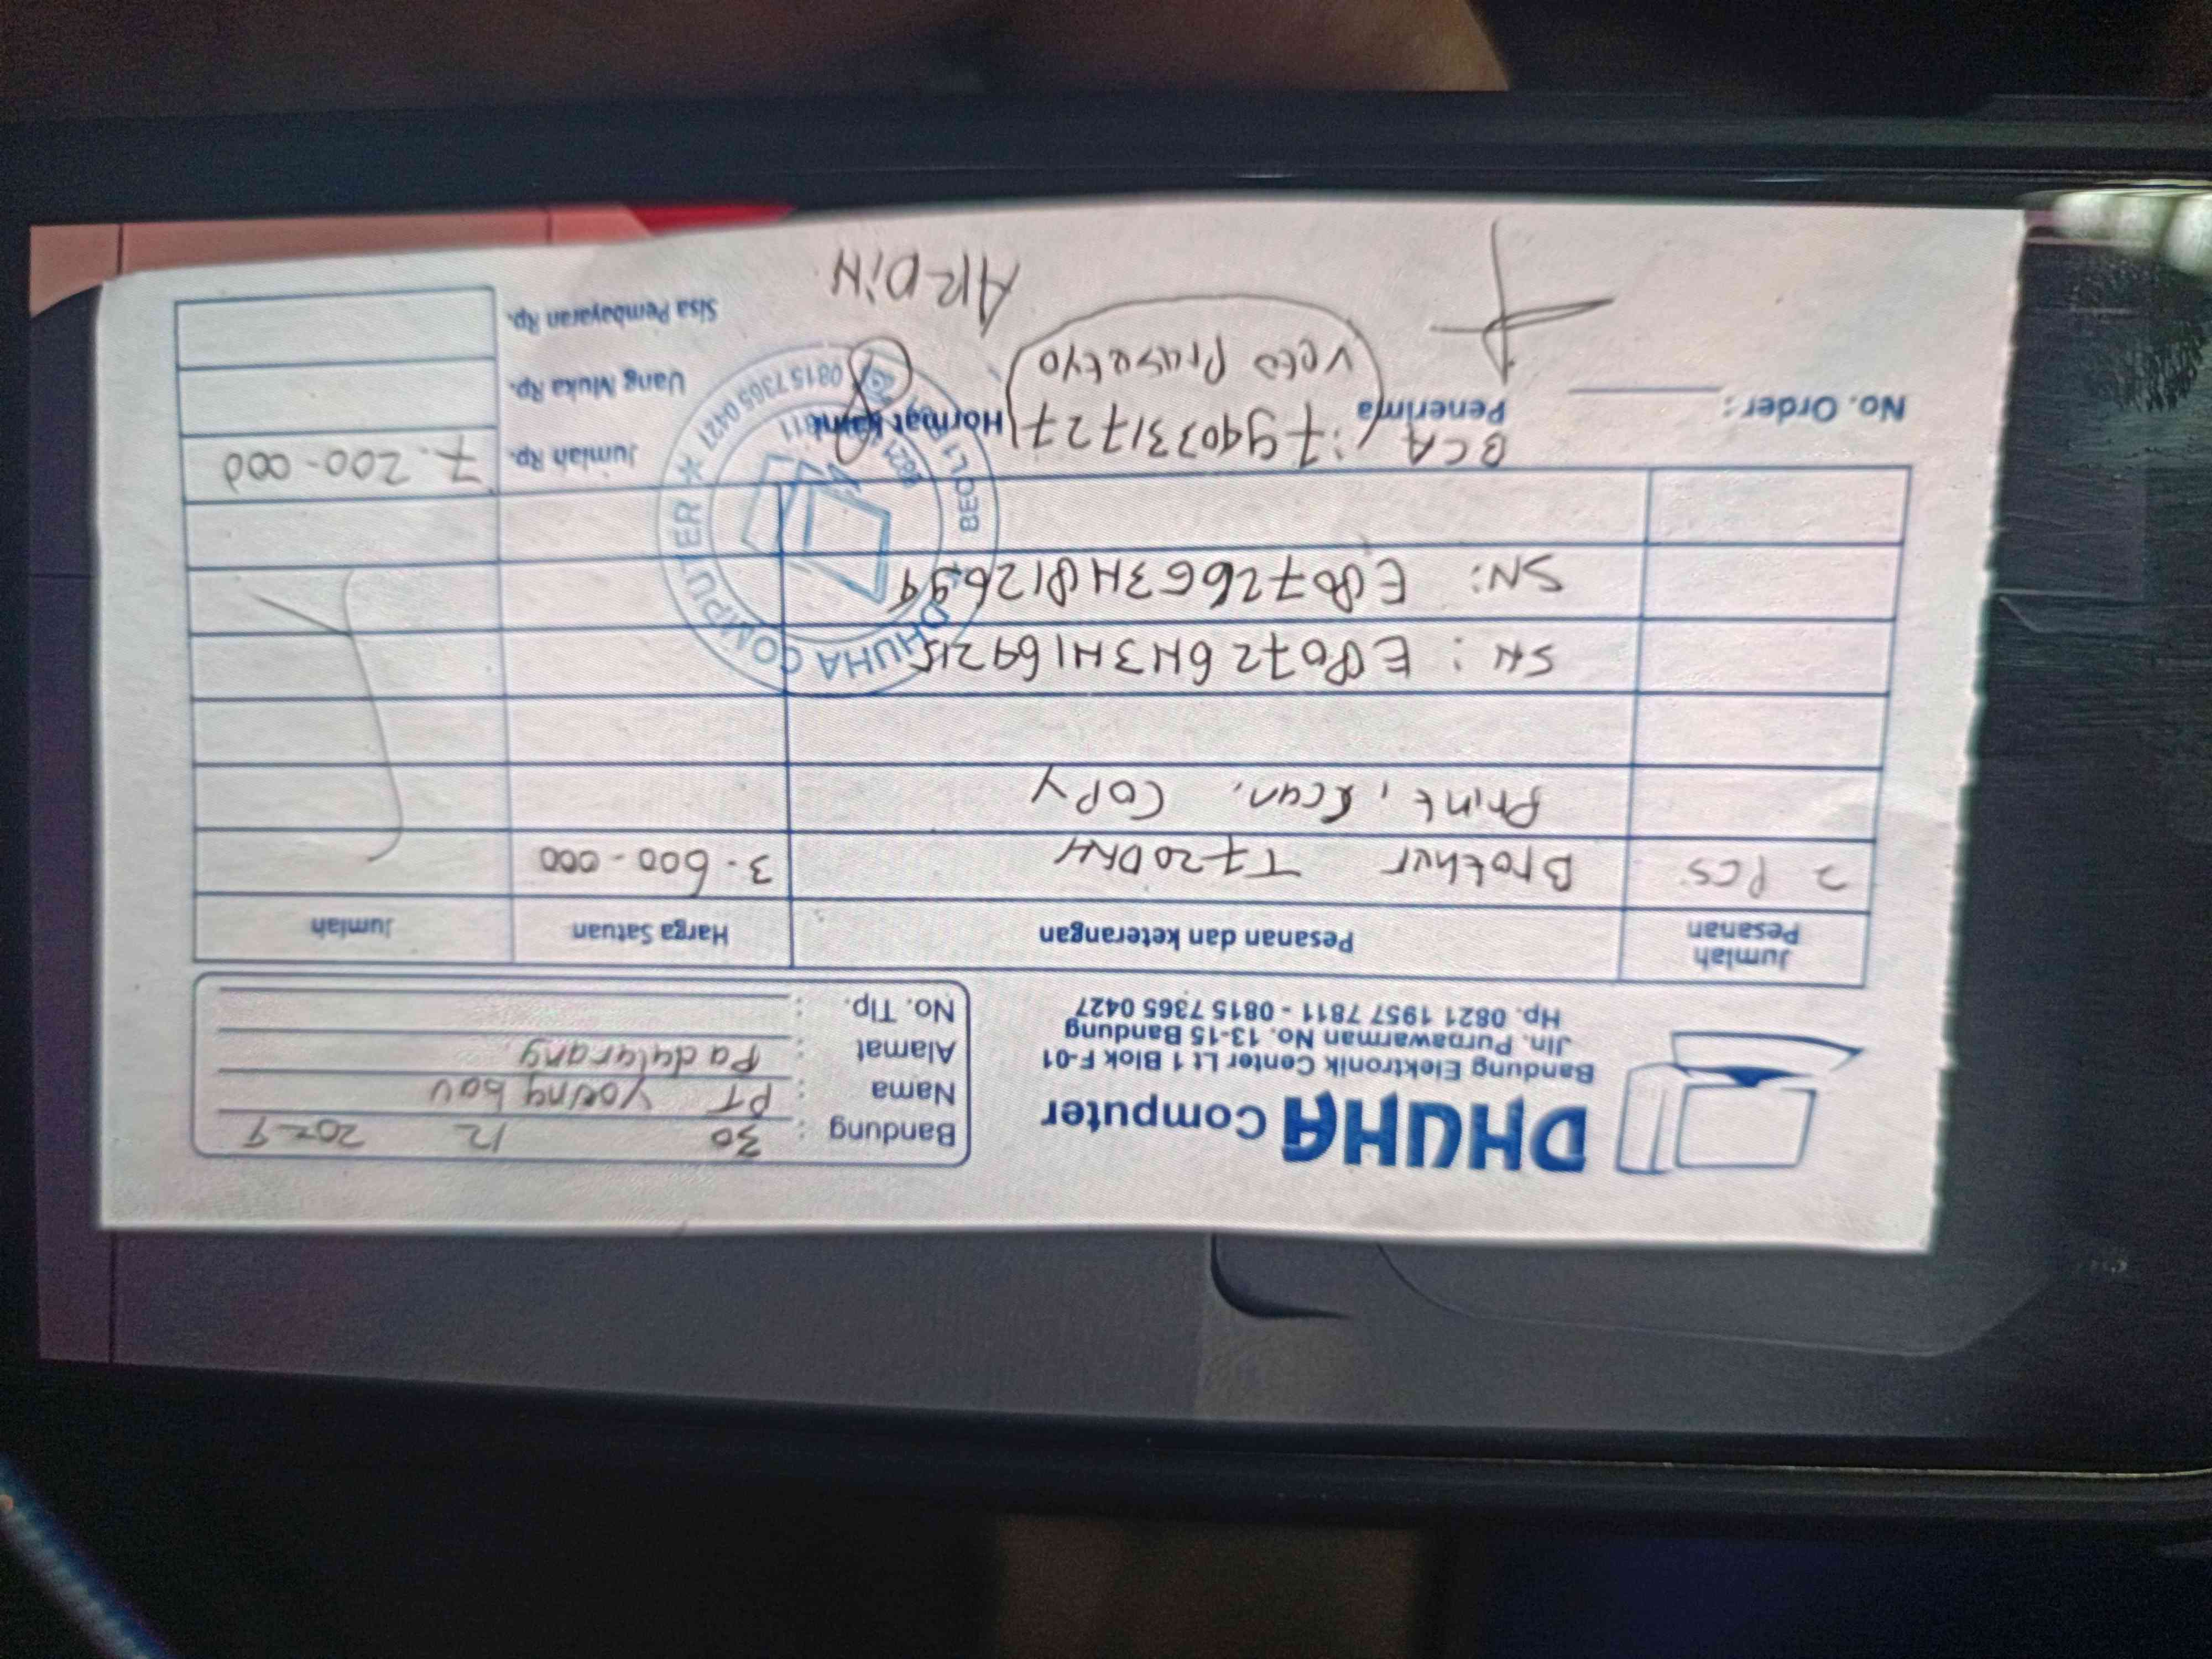 DHUHA Computer
Bandung Elektronik Center Lt 1 Blok F-01
Jln. Purnawarman No. 13-15 Bandung
Hp. 0821 1957 7811 - 0815 7365 0427
Bandung : 30 12 2024
Nama : PT young bou
Alamat : Padalarang
No. Tlp. :
Jumlah Pesanan Pesanan dan keterangan Harga Satuan Jumlah
2 PCS Brother T720DW 3.600.000
Print, Scan, COPY
SN: E80726H3H169215
SN: E80726G3H812694
Jumlah Rp. 7.200.000
Uang Muka Rp.
Sisa Pembayaran Rp.
No. Order :
Penerima
Hormat kami
BCA : 7940331727
Prasetyo
ARDIN
DHUHA COMPUTER
BEC L1
0815 7365 0427